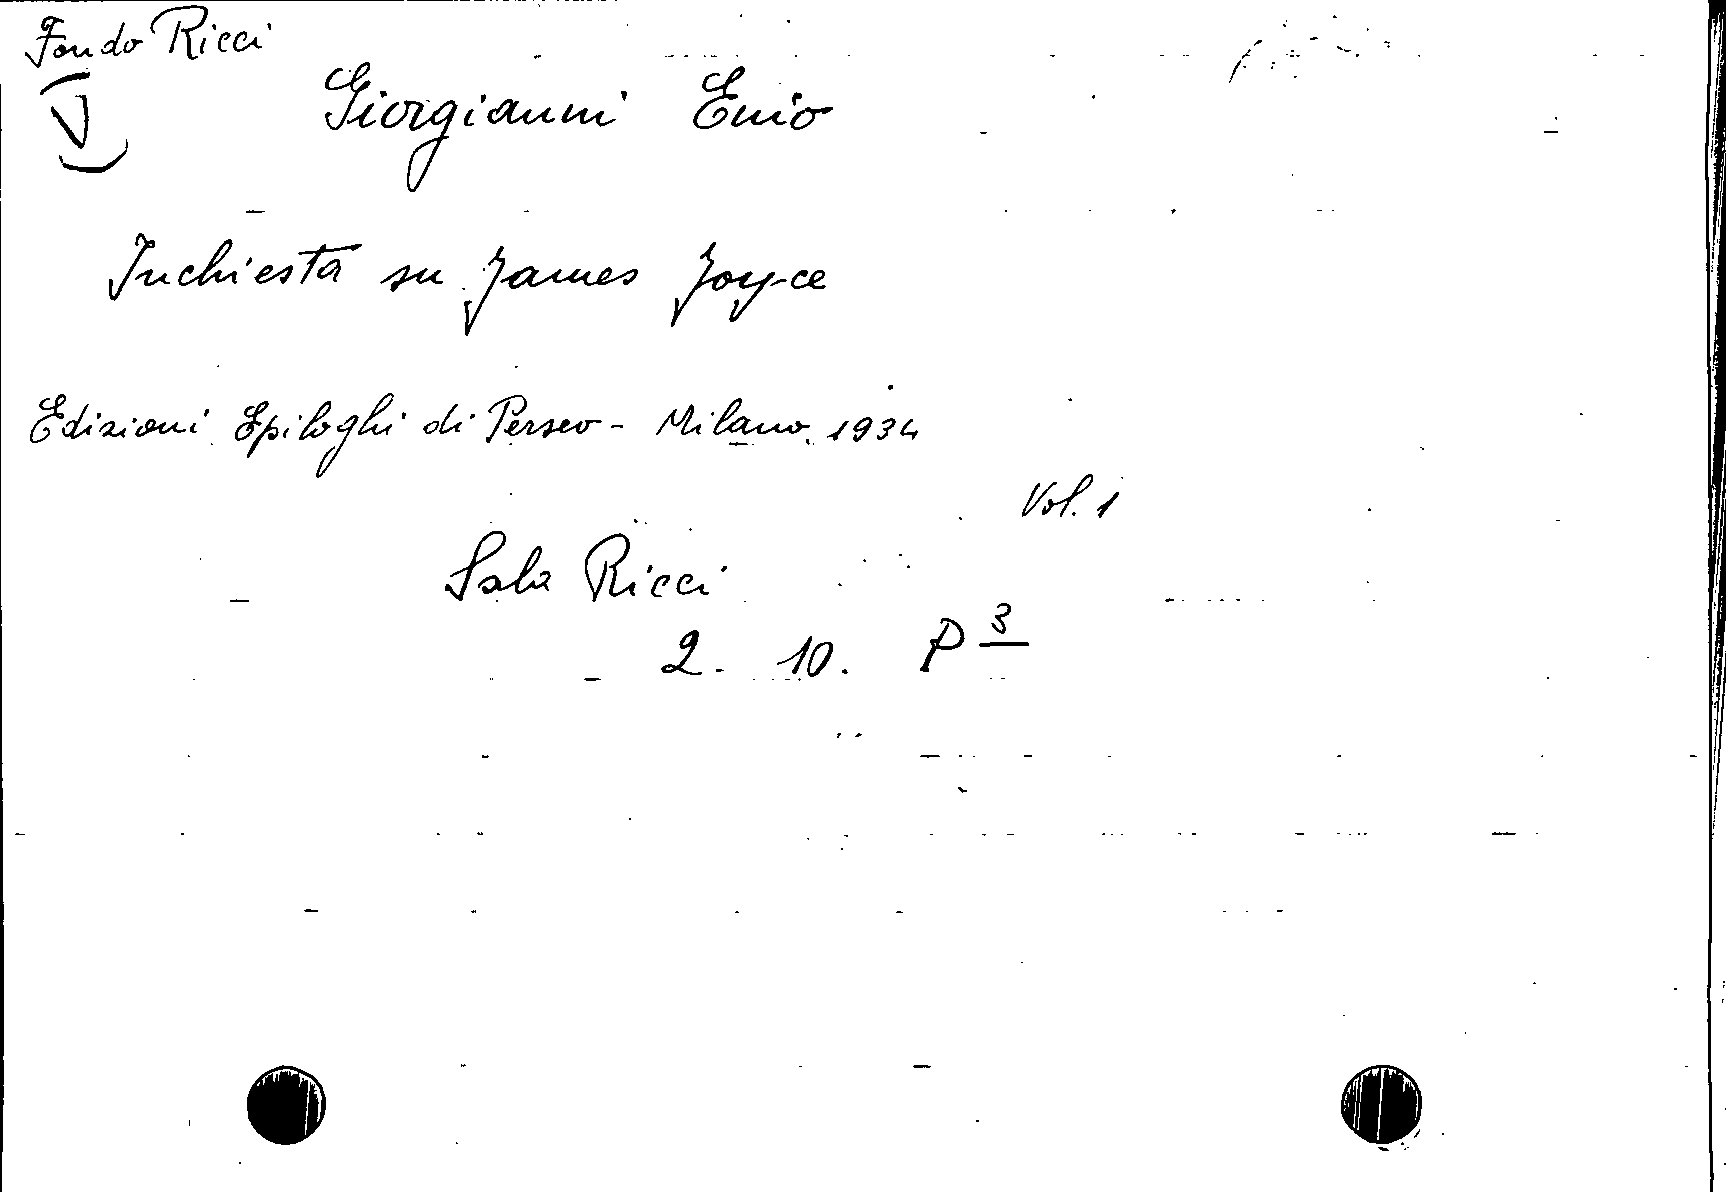 Fondo Ricci
V Giorgianni Enio
Inchiesta su James Joyce
Edizioni Epiloghi di Perseo - Milano 1934
Vol. 1
Sala Ricci
2. 10. P 3